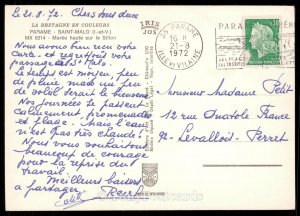 Le 21.8.72. Chers tous deux
LA BRETAGNE EN COULEURS
PARAME - SAINT-MALO (I.-et-V.)
MX 6214 - Marée haute sur le Sillon
Nous avons bien reçu votre
carte, et
passage à St Malo.
Le temps est moyen, peu
de pluie mais un peu
de soleil serait le bienvenu
Nos journées se passent
calmement en promenades et
plage. Mais l'eau
n'est pas chaude!
Nous vous souhaitons
beaucoup de courage
pour la reprise du
travail.
Meilleurs baisers
à partager.
IRIS
35 PARAME
16 H
21-8
1972
ILLE ET VILAINE
PARAME
SA PLAGE
0.30
Monsieur Madame Petit
12 rue Anatole France
92 - Levallois-Perret